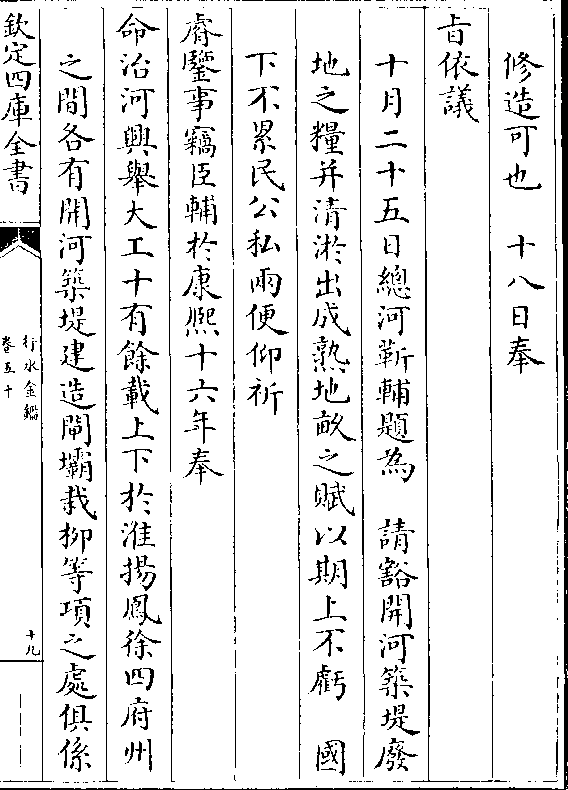 修造可也　十八日奉
旨依議
十月二十五日總河靳輔題為　請豁開河築堤廢
地之糧并清淤出成熟地畝之賦以期上不虧　國
下不累民公私兩便仰祈
睿鑒事竊臣輔於康熙十六年奉
命治河興舉大工十有餘載上下於淮揚鳳徐四府州
之間各有開河築堤建造閘壩栽柳等項之處俱係
欽定四庫全書
行水金鑑
卷五十
十九